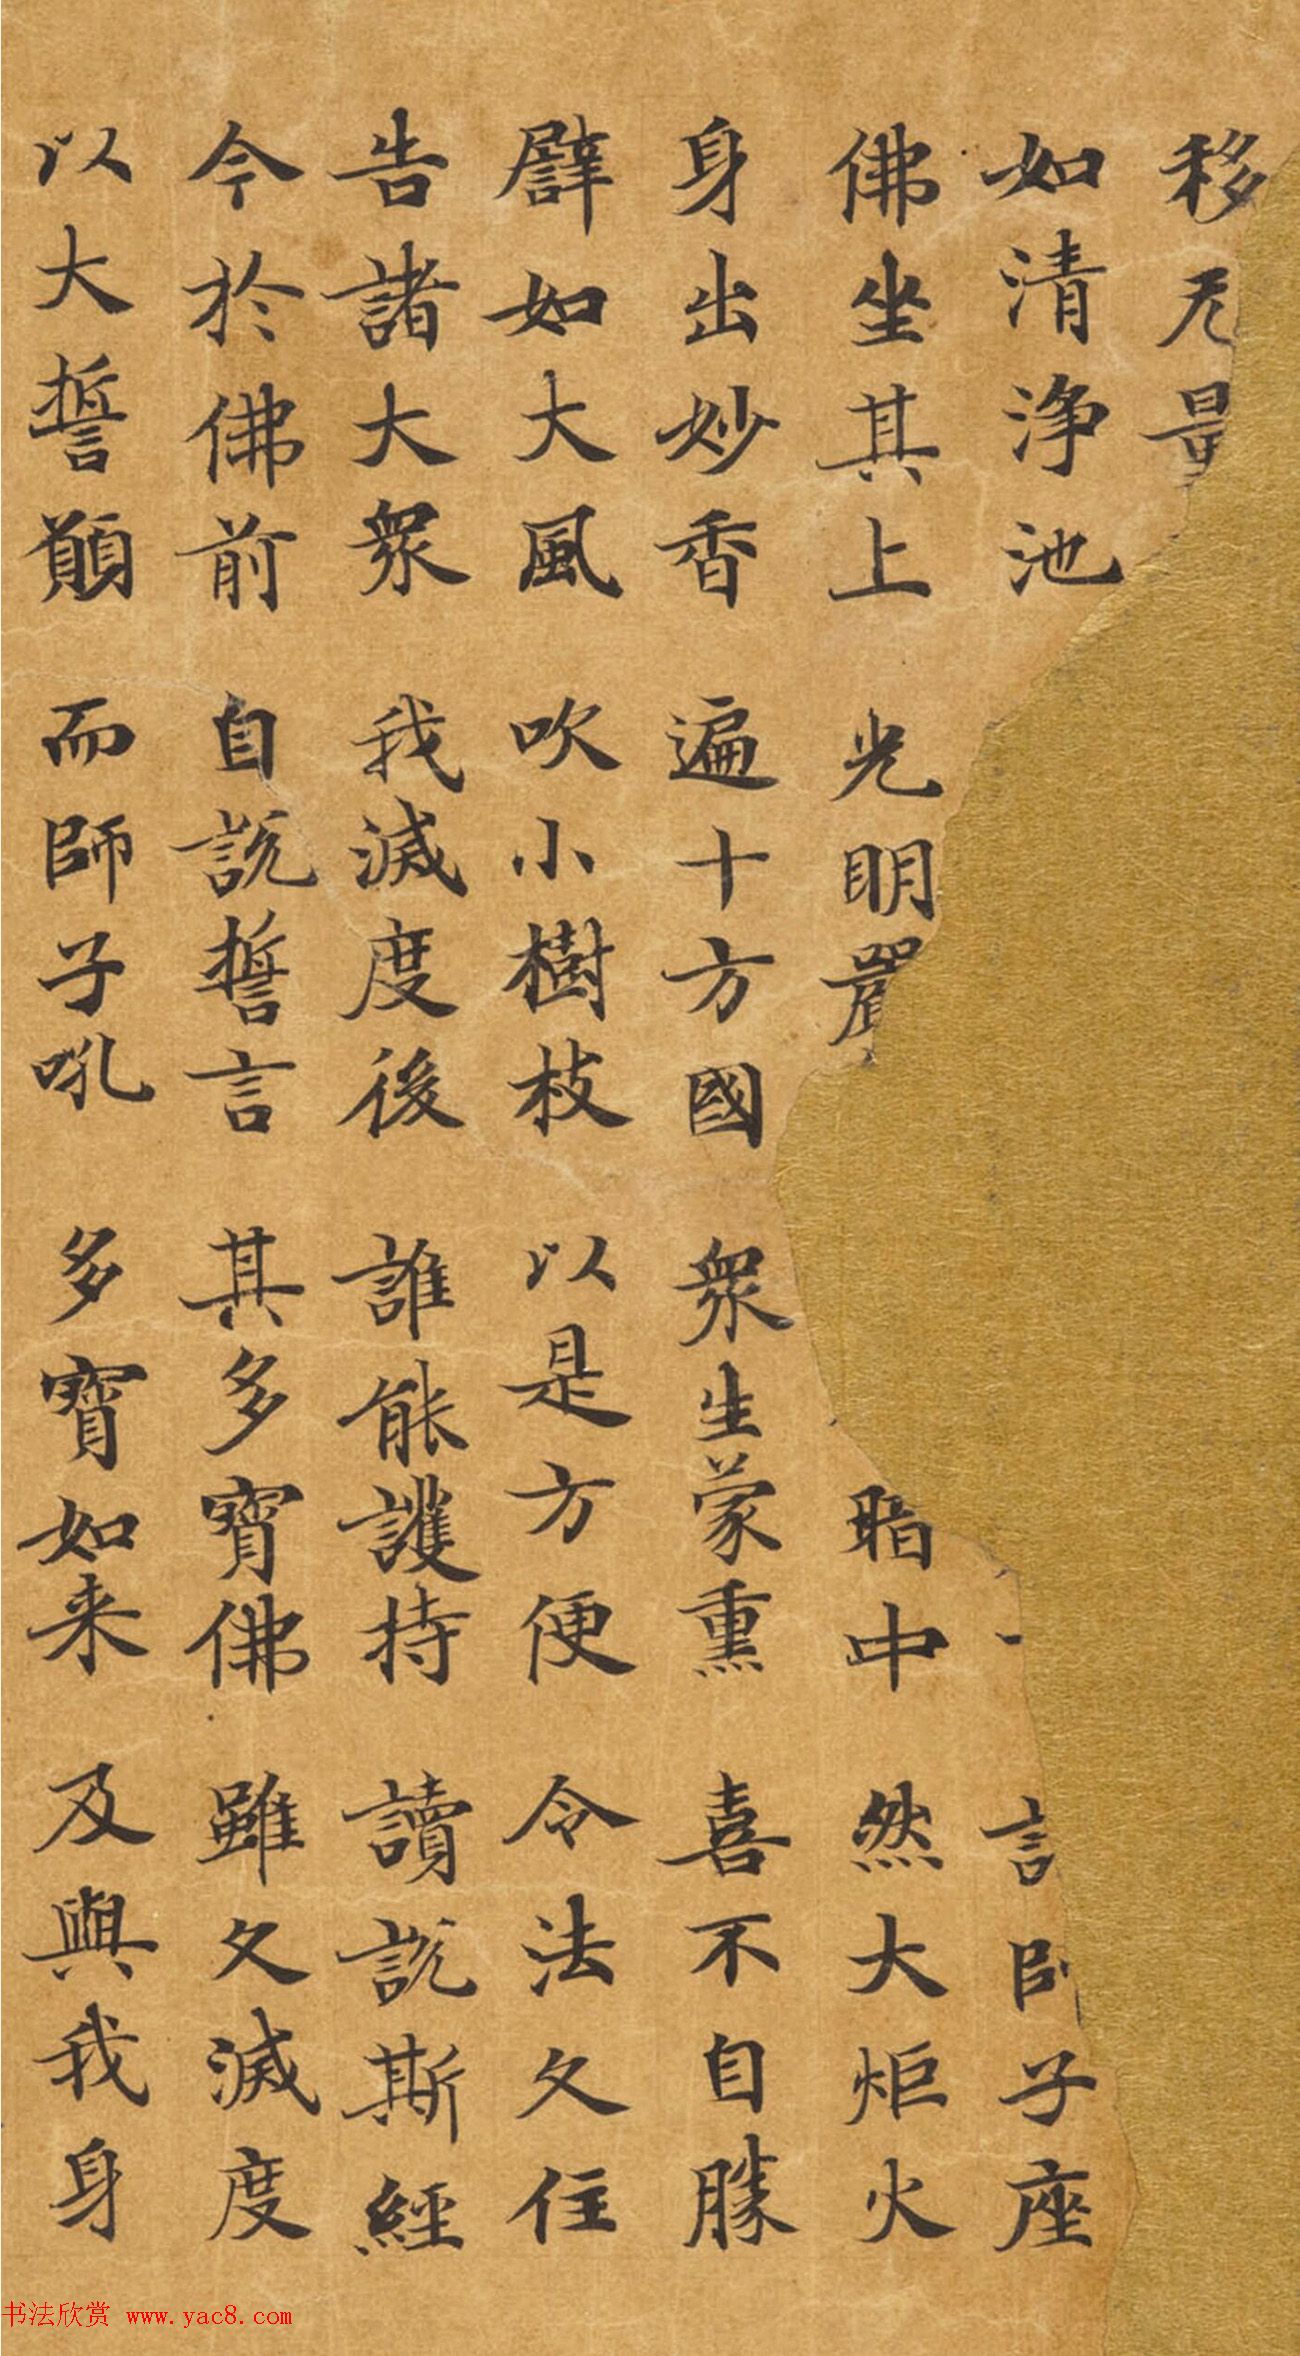 移无量
如清淨池 師子座
佛坐其上 光明嚴 暗中 然大炬火
身出妙香 遍十方國 衆生蒙熏 喜不自勝
譬如大風 吹小樹枝 以是方便 令法久住
告諸大衆 我滅度後 誰能護持 讀說斯經
今於佛前 自說誓言 其多寶佛 雖久滅度
以大誓願 而師子吼 多寶如来 及與我身
书法欣赏 www.yac8.com